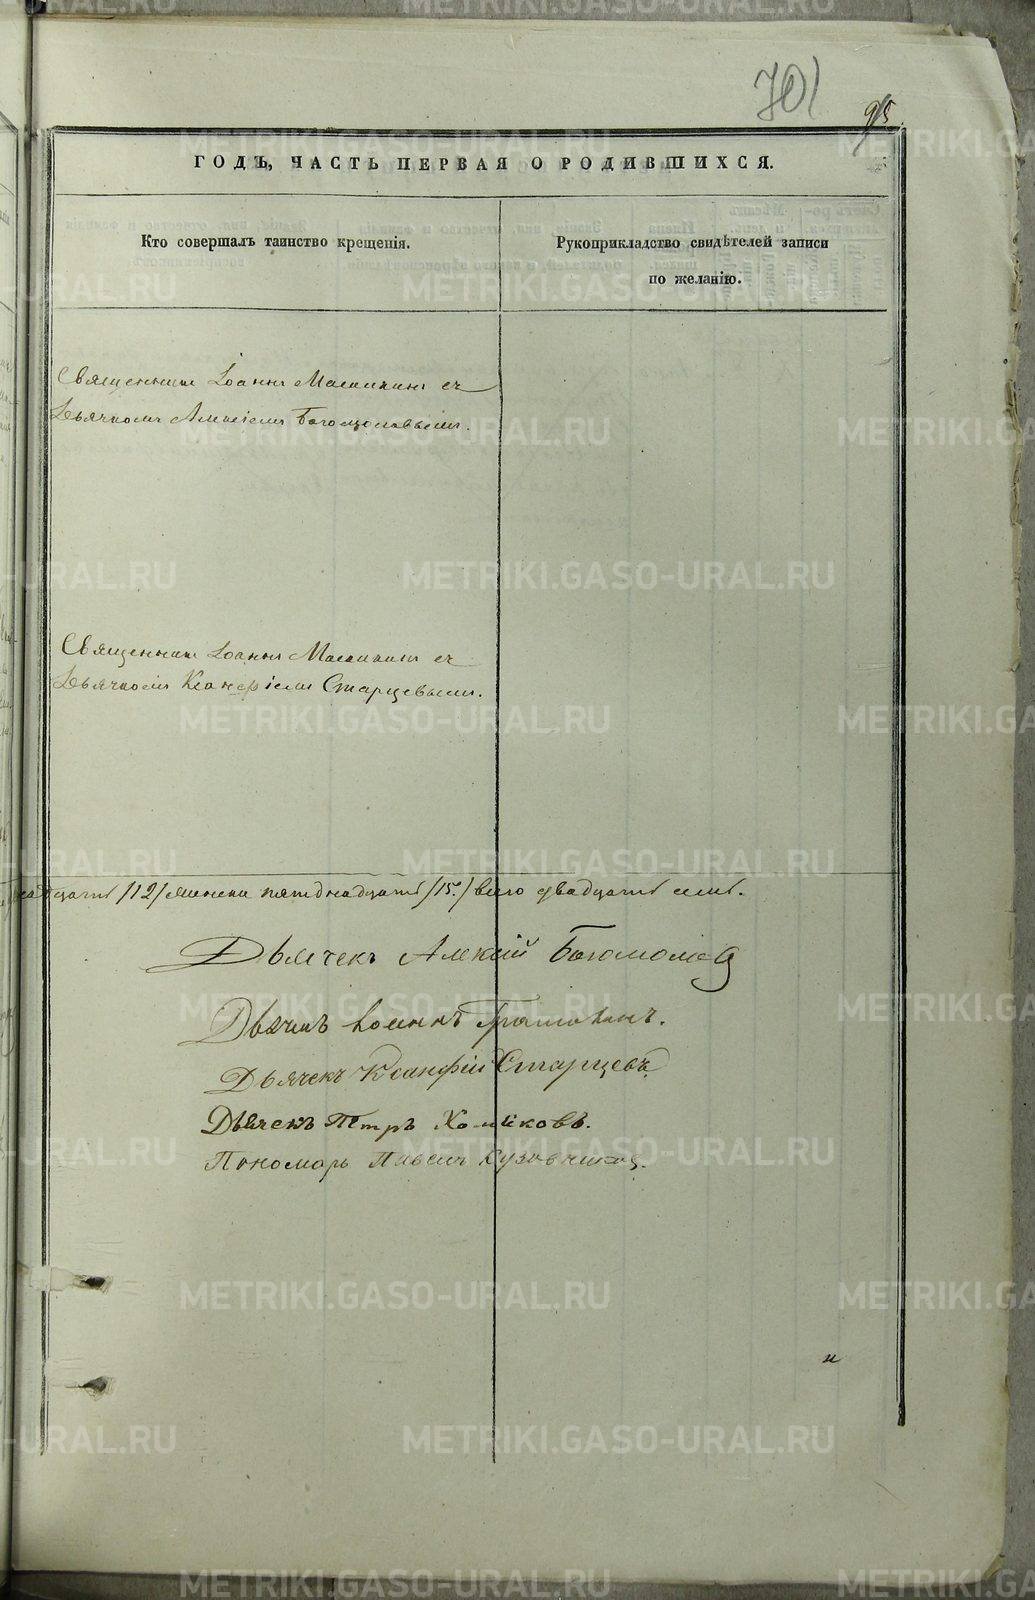 701
95
ГОДЪ, ЧАСТЬ ПЕРВАЯ О РОДИВШИХСЯ.
Кто совершалъ таинство крещенія.
Рукоприкладство свидѣтелей записи
по желанію.
Священникъ Іоаннъ съ
Дьячкомъ Алексіемъ Богомоловымъ.
Священникъ Іоаннъ съ
Дьячкомъ Ксанфіемъ Старцевымъ.
/12/ женска пятнадцать /15/ всего двадцать семь.
Дьячекъ Алексій Богомоловъ
Дьячекъ Іоаннъ
Дьячекъ Ксанфій Старцевъ.
Дьячекъ Петръ Хомяковъ.
Пономарь Павелъ Кузовников.
METRIKI.GASO-URAL.RU